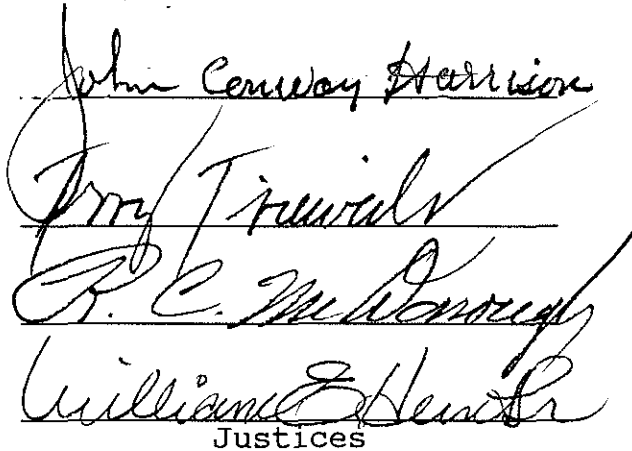 John Conway Harrison
Terry Trieweiler
R. C. McDonough
William E. Hunt Sr
Justices